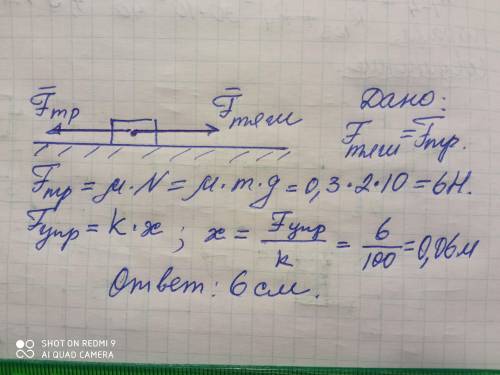 F̅тр
F̅тяги
Дано:
Fтяги = Fтр.
Fтр = μ·N = μ·m·g = 0,3·2·10 = 6Н.
Fупр = k·x ; x = Fупр/k = 6/100 = 0,06м
Ответ: 6 см.
SHOT ON REDMI 9
AI QUAD CAMERA